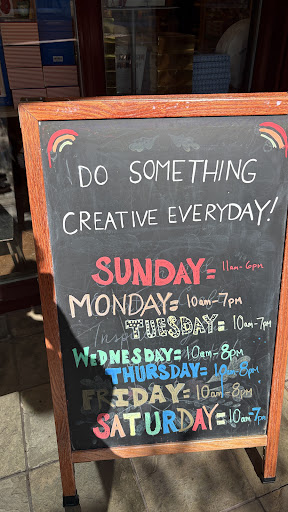 DO SOMETHING
CREATIVE EVERYDAY!
SUNDAY= 11am-6pm
MONDAY= 10am-7pm
TUESDAY= 10am-7pm
WEDNESDAY= 10am-8pm
THURSDAY= 10am-8pm
FRIDAY= 10am-8pm
SATURDAY= 10am-7pm